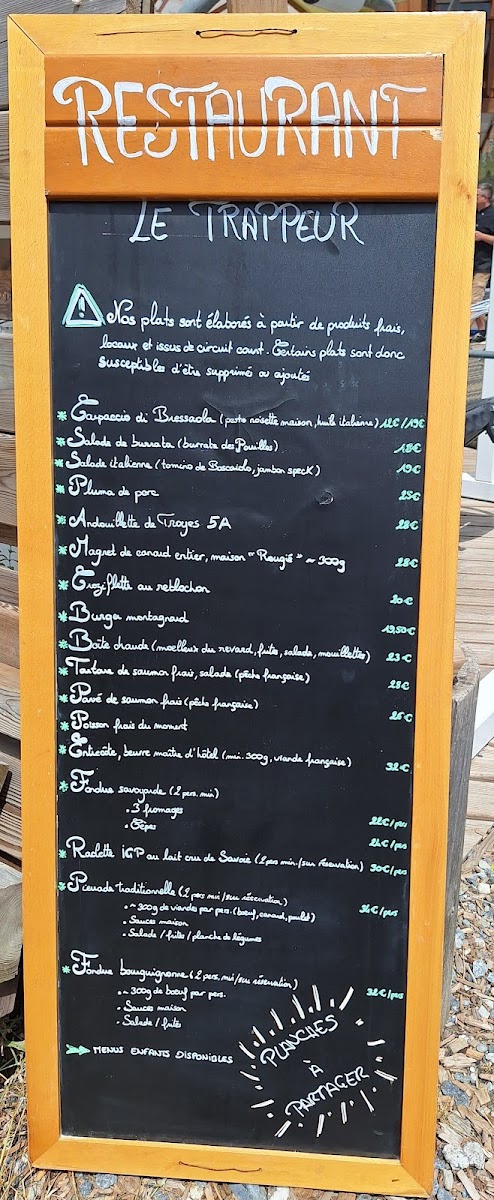 RESTAURANT
LE TRAPPEUR
Nos plats sont élaborés à partir de produits frais,
locaux et issus de circuit court. Certains plats sont donc
susceptibles d'être supprimé ou ajoutés
Carpaccio di Bressaola (pesto noisette maison, huile italienne) 12€/19€
Salade de burrata (burrata des Pouilles) 18€
Salade italienne (tomino de Boscaiolo, jambon speck) 19€
Pluma de porc 25€
Andouillette de Troyes 5A 28€
Magret de canard entier, maison "Rougié" ~ 300g 28€
Croziflette au reblochon 20€
Burger montagnard 19,50€
Boîte chaude (moelleux du revard, frites, salade, mouillettes) 23€
Tartare de saumon frais, salade (pêche française) 25€
Pavé de saumon frais (pêche française) 26€
Poisson frais du moment
Entrecôte, beurre maître d'hôtel (mini. 300g, viande française) 32€
Fondue savoyarde (2 pers. mini)
• 3 fromages 22€/pers
• Cèpes 24€/pers
Raclette IGP au lait cru de Savoie (2 pers min./sur réservation) 30€/pers
Pierrade traditionnelle (2 pers mini/sur réservation)
• ~ 300g de viandes par pers. (bœuf, canard, poulet) 34€/pers
• Sauces maison
• Salade / frites / planche de légumes
Fondue bourguignonne (2 pers. mini/sur réservation)
• ~ 300g de bœuf par pers. 32€/pers
• Sauces maison
• Salade / frites
MENUS ENFANTS DISPONIBLES
PLANCHES
À
PARTAGER